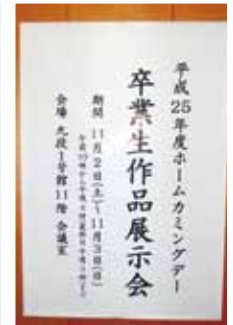 平成25年度ホームカミングデー
卒業生作品展示会
期間 11月2日(土)～11月3日(日)
会場 九段1号館11階 会議室